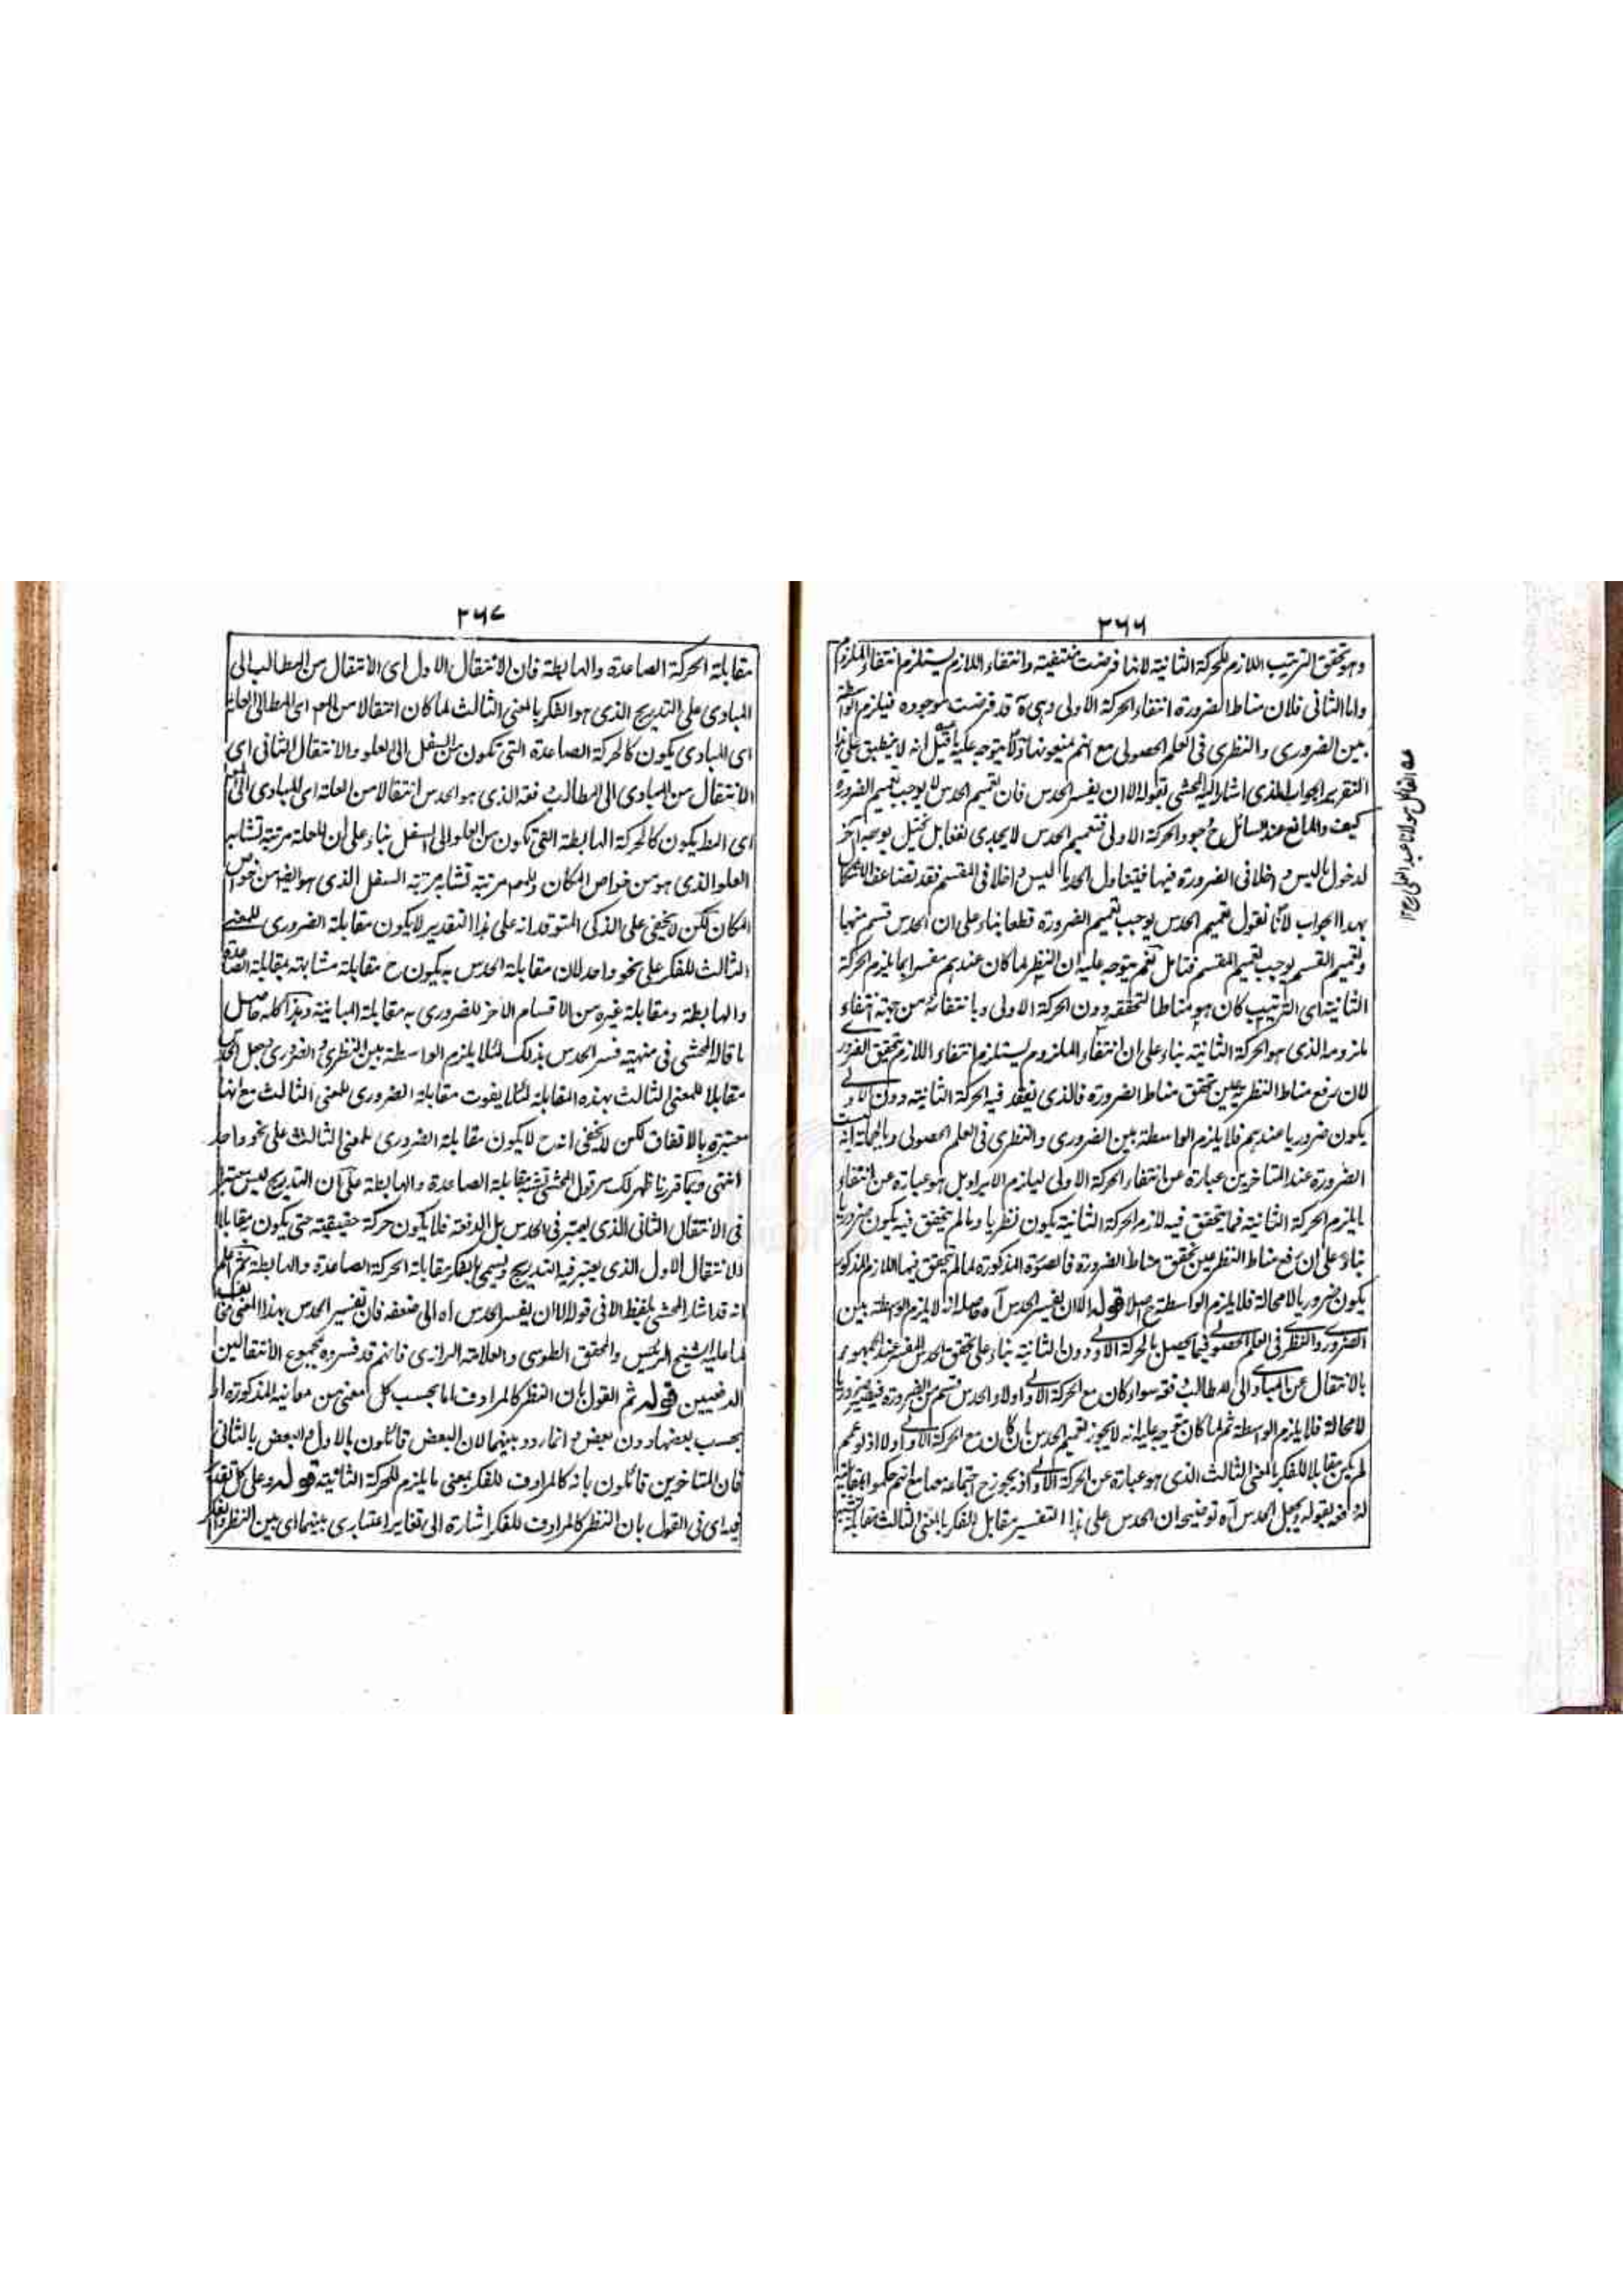 ٣٦٦
وهو تحقق الترتيب اللازم للحركة الثانية لانها فرضت منتفية وانتفاء اللازم يستلزم انتفاء الملزوم
واما الثانى فلان مناط الضرورة انتفاء الحركة الاولى وهى ة قد فرضت موجوده فيلزم الواسطة
بين الضرورى والنظرى فى العلم الحصولى مع انهم منعونها ولا يتوجه عليه ما قيل انه لا ينطبق على هذا
التقرير الجواب الذى اشار اليه المحشى بقوله الا ان يفسر الحدس فان تعميم الحدس لا يوجب تعميم الضرورة
كيف والمانع عند السائل ح وجود الحركة الاولى فتعميم الحدس لا يجدى نفعا بل يختل بوجه آخر
لدخول ما ليس داخلا فى الضرورة فيها فيتناول الحد ما ليس داخلا فى المقسم فقد تضاعف الاشكال
بهذا الجواب لانا نقول تعميم الحدس يوجب تعميم الضرورة قطعا بناء على ان الحدس قسم منها
وتعميم القسم يوجب تعميم المقسم فتامل نعم يتوجه عليه ان النظر لما كان عندهم مفسرا بما يلزم الحركة
الثانية اى الترتيب كان هو مناطا لتحققه دون الحركة الاولى وبانتفائه من جهة انتفاء
ملزومه الذى هو الحركة الثانية بناء على ان انتفاء الملزوم يستلزم انتفاء اللازم تحقق الضرورى
لان رفع مناط النظرية عين تحقق مناط الضرورة فالذى يفقد فيه الحركة الثانية دون الاولى
يكون ضروريا عندهم فلا يلزم الواسطة بين الضرورى والنظرى فى العلم الحصولى وبالجملة انه ليست
الضرورة عند المتاخرين عبارة عن انتفاء الحركة الاولى ليلزم الايراد بل هو عبارة عن انتفاء
ما يلزم الحركة الثانية فما يتحقق فيه لازم الحركة الثانية يكون نظريا وما لم يتحقق فيه يكون ضروريا
بناء على ان رفع مناط النظر عين تحقق مناط الضرورة فالصورة المذكورة لما لم يتحقق فيها اللازم المذكور
يكون ضروريا لا محالة فلا يلزم الواسطة ح اصلا قوله الا ان يفسر الحدس آه حاصله انه لا يلزم الواسطة بين
الضرورى والنظرى فى العلم الحصولى فيما يحصل بالحركة الاولى دون الثانية بناء على تحقق الحدس المفسر عند الجمهور
بالانتقال عن المبادى الى المطالب دفعة سواء كان مع الحركة الاولى او لا والحدس قسم من الضرورة فيكون ضروريا
لا محالة فلا يلزم الواسطة ثم لما كان يتوجه عليه انه لا يجوز تعميم الحدس بان كان مع الحركة الاولى او لا اذ لو عمم
لم يكن مقابلا للفكر بالمعنى الثالث الذى هو عبارة عن الحركة الاولى اذ يجوز ح اجتماعه معها مع انهم حكموا بمقابلته
له دفعه بقوله ويجعل الحدس آه توضيحه ان الحدس على هذا التفسير مقابل للفكر بالمعنى الثالث مقابلة تشبه
عه الفاضل مولانا عبد العلى رح ١٢
٣٦٧
مقابلة الحركة الصاعدة والهابطة فان الانتقال الاول اى الانتقال من المطالب الى
المبادى على التدريج الذى هو الفكر بالمعنى الثالث لما كان انتقالا من المعلول اى المطالب الى العلة
اى المبادى يكون كالحركة الصاعدة التى تكون من السفل الى العلو والانتقال الثانى اى
الانتقال من المبادى الى المطالب دفعة الذى هو الحدس انتقالا من العلة اى المبادى الى المعلول
اى المطالب يكون كالحركة الهابطة التى تكون من العلو الى السفل بناء على ان للعلة مرتبة تشابه
العلو الذى هو من خواص المكان وللمعلول مرتبة تشابه مرتبة السفل الذى هو ايضا من خواص
المكان لكن لا يخفى على الذكى المتوقد انه على هذا التقدير لا يكون مقابلة الضرورى للمعنى
الثالث للفكر على نحو واحد لان مقابلة الحدس به يكون ح مقابلة مشابهة بمقابلة الصاعدة
والهابطة ومقابلة غيره من الاقسام الآخر للضرورى به مقابلة المباينة وهذا كله حاصل
ما قاله المحشى فى منهيته فسر الحدس بذلك لئلا يلزم الواسطة بين النظرى والضرورى وجعل الحدس
مقابلا للمعنى الثالث بهذه المقابلة لئلا يفوت مقابلة الضرورى للمعنى الثالث مع انها
معتبرة بالاتفاق لكن لا يخفى انه ح لا يكون مقابلة الضرورى للمعنى الثالث على نحو واحد
انتهى وبما قررنا ظهر لك سر قول المحشى تشبه مقابلة الصاعدة والهابطة على ان التدريج ليس معتبرا
فى الانتقال الثانى الذى يعتبر فى الحدس بل الدفعة فلا يكون حركة حقيقية حتى يكون مقابلا
للانتقال الاول الذى يعتبر فيه التدريج ويسمى بالفكر مقابلة الحركة الصاعدة والهابطة ثم اعلم
انه قد اشار المحشى بلفظ الا فى قوله الا ان يفسر الحدس اه الى ضعفه فان تفسير الحدس بهذا المعنى مخالف
لما عليه الشيخ الرئيس والمحقق الطوسى والعلامة الرازى فانهم قد فسروه بمجموع الانتقالين
الدفعيين قوله ثم القول بان النظر كالمرادف اما بحسب كل معنى من معانيه المذكورة او
بحسب بعضها دون بعض وانما ردد بينهما لان البعض قائلون بالاول والبعض بالثانى
فان المتاخرين قائلون بانه كالمرادف للفكر بمعنى ما يلزم للحركة الثانية قوله وعلى كل تقدير
فيه اى فى القول بان النظر كالمرادف للفكر اشارة الى تغاير اعتبارى بينهما اى بين النظر والفكر